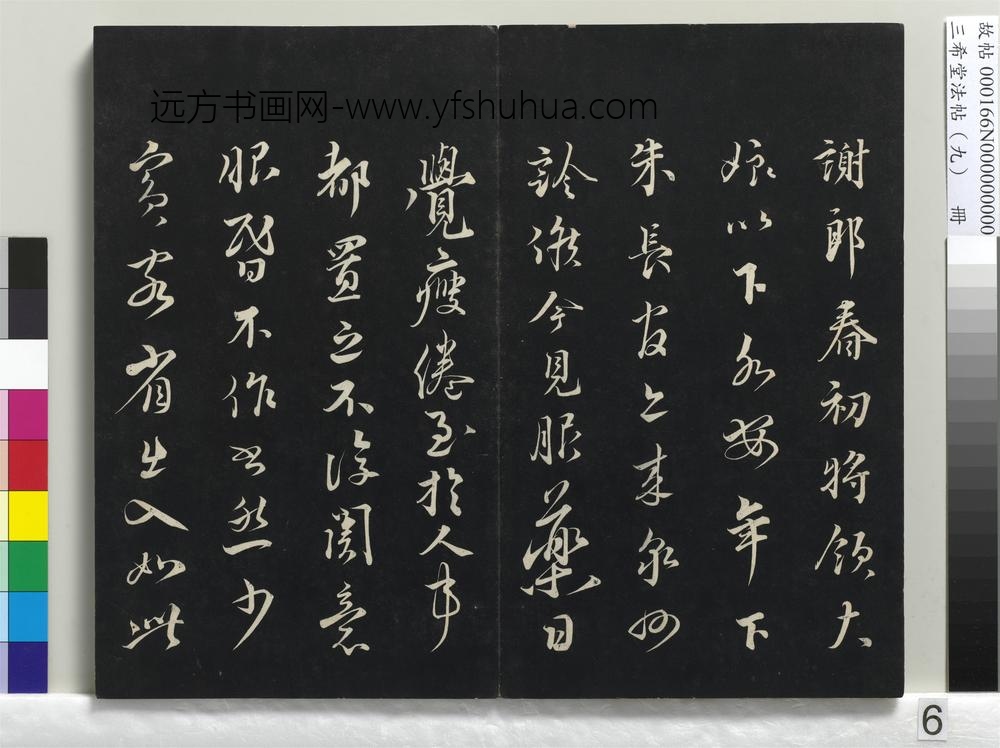 謝郎春初將領大
娘以下各安年下
朱長官亦來泉州
診候今見服藥日
覺瘦倦至於人事
都置之不復關意
眼昏不作書然少
賓客省出入如此
远方书画网-www.yfshuhua.com
故帖 000166N000000000
三希堂法帖(九) 冊
6